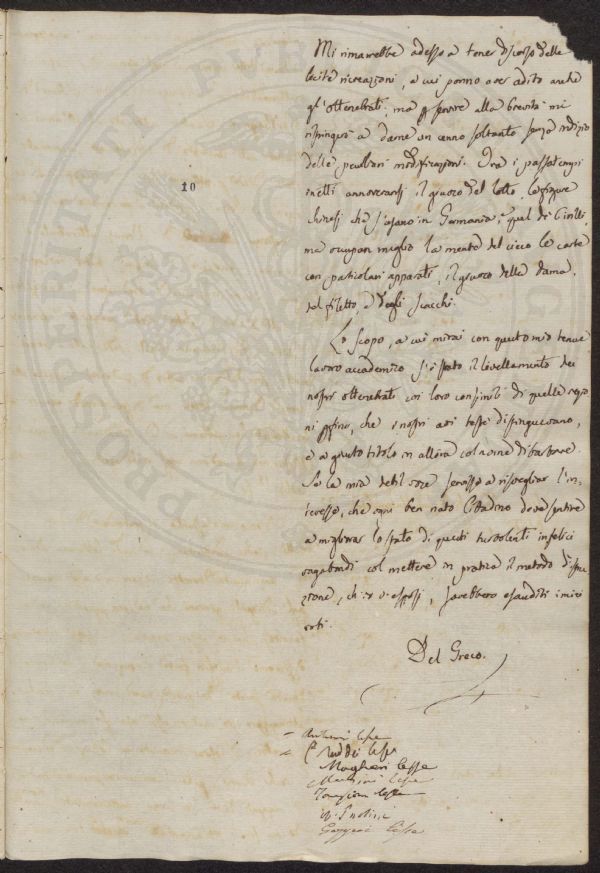 10
Mi rimarrebbe adesso a tener discorso delle
lecite ricreazioni, a cui ponno aver adito anche
gl'ottenebrati; ma per servire alla brevità mi
ristringerò a darne un cenno soltanto senza
delle peculiari modificazioni. Tra i passatempi
inetti annoveransi il giuoco del lotto, le figure
chinesi che s'usano in Germania, quel di birilli,
ma occupan meglio la mente del cieco le carte
con particolari apparati, il giuoco della dama,
del filetto, e degli scacchi.
Lo scopo, a cui mirai con questo mio tenue
lavoro accademico s'è stato il livellamento dei
nostri ottenebrati coi loro consimili di quelle
ni che i nostri avi distinguevano,
e a giusto titolo in allora col nome di barbare.
Se la mia debil voce servisse a risvegliar l'in
teresse, che ogni ben nato Cittadino deve sentire
a migliorar lo stato di questi infelici
vagabondi col mettere in pratica il metodo d'istru
zione, ch'io v'esposi, sarebbero esauditi i miei
voti.
Del Greco.
= Lesse
= Taddei Lesse
Magheri Lesse
Lesse
Lesse
Gazzeri Lesse
PROSPERITATI PUBLICAE AUG